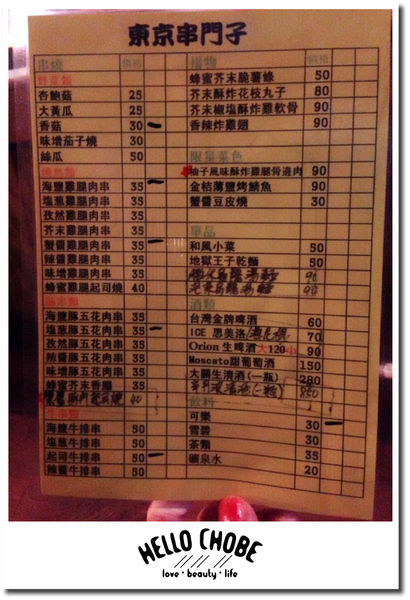 東京串門子
串燒 價格
野菜類
杏鮑菇 25
大黃瓜 25
香菇 30
味增茄子燒 30
絲瓜 50
海鹽雞腿肉串 35
塩蔥雞腿肉串 35
孜然雞腿肉串 35
芥末雞腿肉串 35
蟹醬雞腿肉串 35
辣醬雞腿肉串 35
味增雞腿肉串 35
蜂蜜雞腿起司燒 40
海鹽豚五花肉串 35
塩蔥豚五花肉串 35
孜然豚五花肉串 35
辣醬豚五花肉串 35
味增豚五花肉串 35
蜂蜜芥末香腸 35
40
牛串類
海鹽牛排串 50
塩蔥牛排串 50
起司牛排串 50
辣醬牛排串 50
揚物 價格
蜂蜜芥末脆薯條 50
芥末酥炸花枝丸子 80
芥末椒塩酥炸雞軟骨 90
香辣炸雞翅 90
限量菜色
柚子風味酥炸雞腿骨邊肉 90
金桔薄鹽烤鯖魚 90
蟹醬豆皮燒 30
單品
和風小菜 50
地獄王子乾麵 50
90
90
酒類
台灣金牌啤酒 60
ICE 思美洛 70
Orion 生啤酒 大120 小 90
Moscato甜葡萄酒 150
大關生清酒(一瓶) 280
850
飲料
可樂 30
雪碧 30
茶類 30
礦泉水 35
20
HELLO CHOBE
love • beauty • life